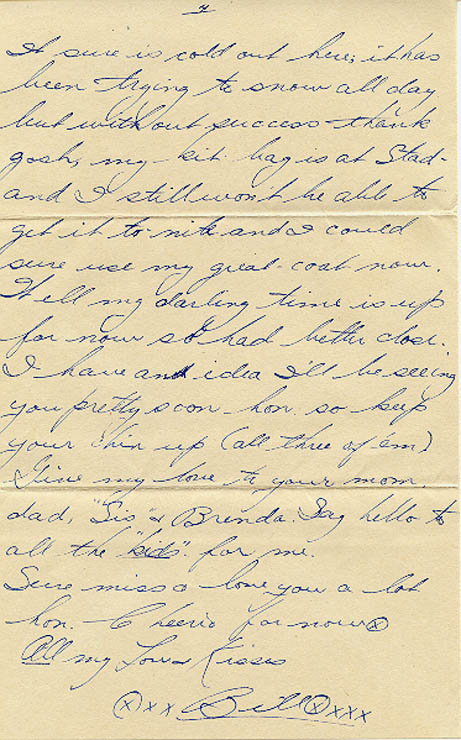 4
It sure is cold out here; it has
been trying to snow all day
but without success - thank
gosh, my kit bag is at Stad-
and I still won't be able to
get it to-nite and I could
sure use my great-coat now.
Well my darling time is up
for now so had better close.
I have an idea I'll be seeing
you pretty soon hon. so keep
your chin up (all three of 'em)
Give my love to your mom,
dad, "Sis" & Brenda. Say hello to
all the "kids" for me.
Sure miss & love you a lot
hon. Cheerio for now ⓧ
All my Love & Kisses
ⓧxx Bill ⓧxxx